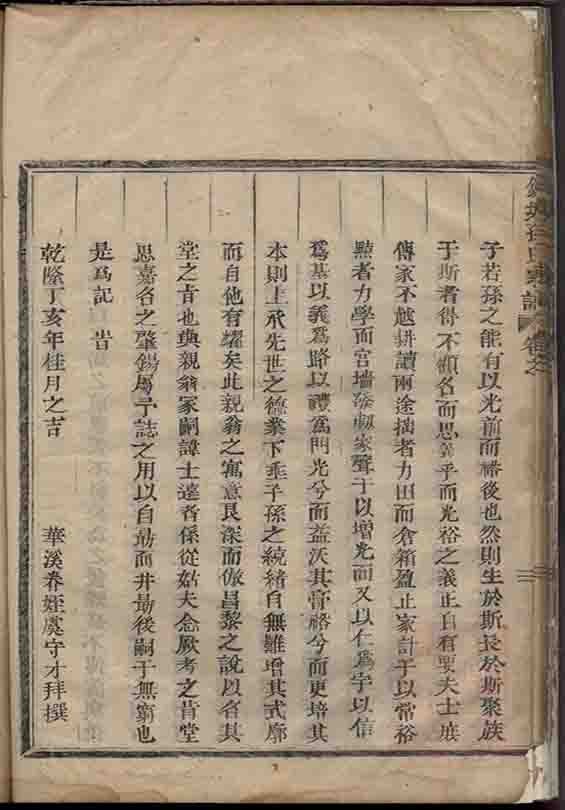 子若孫之能有以光前而裕後也然則生於斯長於斯聚族
于斯者得不顧名而思義乎而光裕之義正自有要夫士族
傳家不越耕讀兩途拙者力田而倉箱盈止家計于以常裕
黠者力學而宮墻家聲于以增光而又以仁爲宇以信
爲基以義爲路以禮爲門光兮而益沃其膏裕兮而更培其
本則上承先世之德業下垂子孫之統緒自無難增其式廓
而自他有燿矣此親翁之寓意良深而倣昌黎之說以名其
堂之旨也與親翁冢嗣諱士達者係從姑夫念厥考之肯堂
思嘉名之肇錫屬予誌之用以自勗而并勗後嗣于無窮也
是爲記 旹
乾隆丁亥年桂月之吉 華溪眷姪虞守才拜撰
氏宗譜 卷之